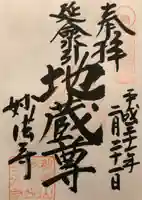 奉拝
平成三十一年
二月二十二日
延命水引
地蔵尊
妙法寺